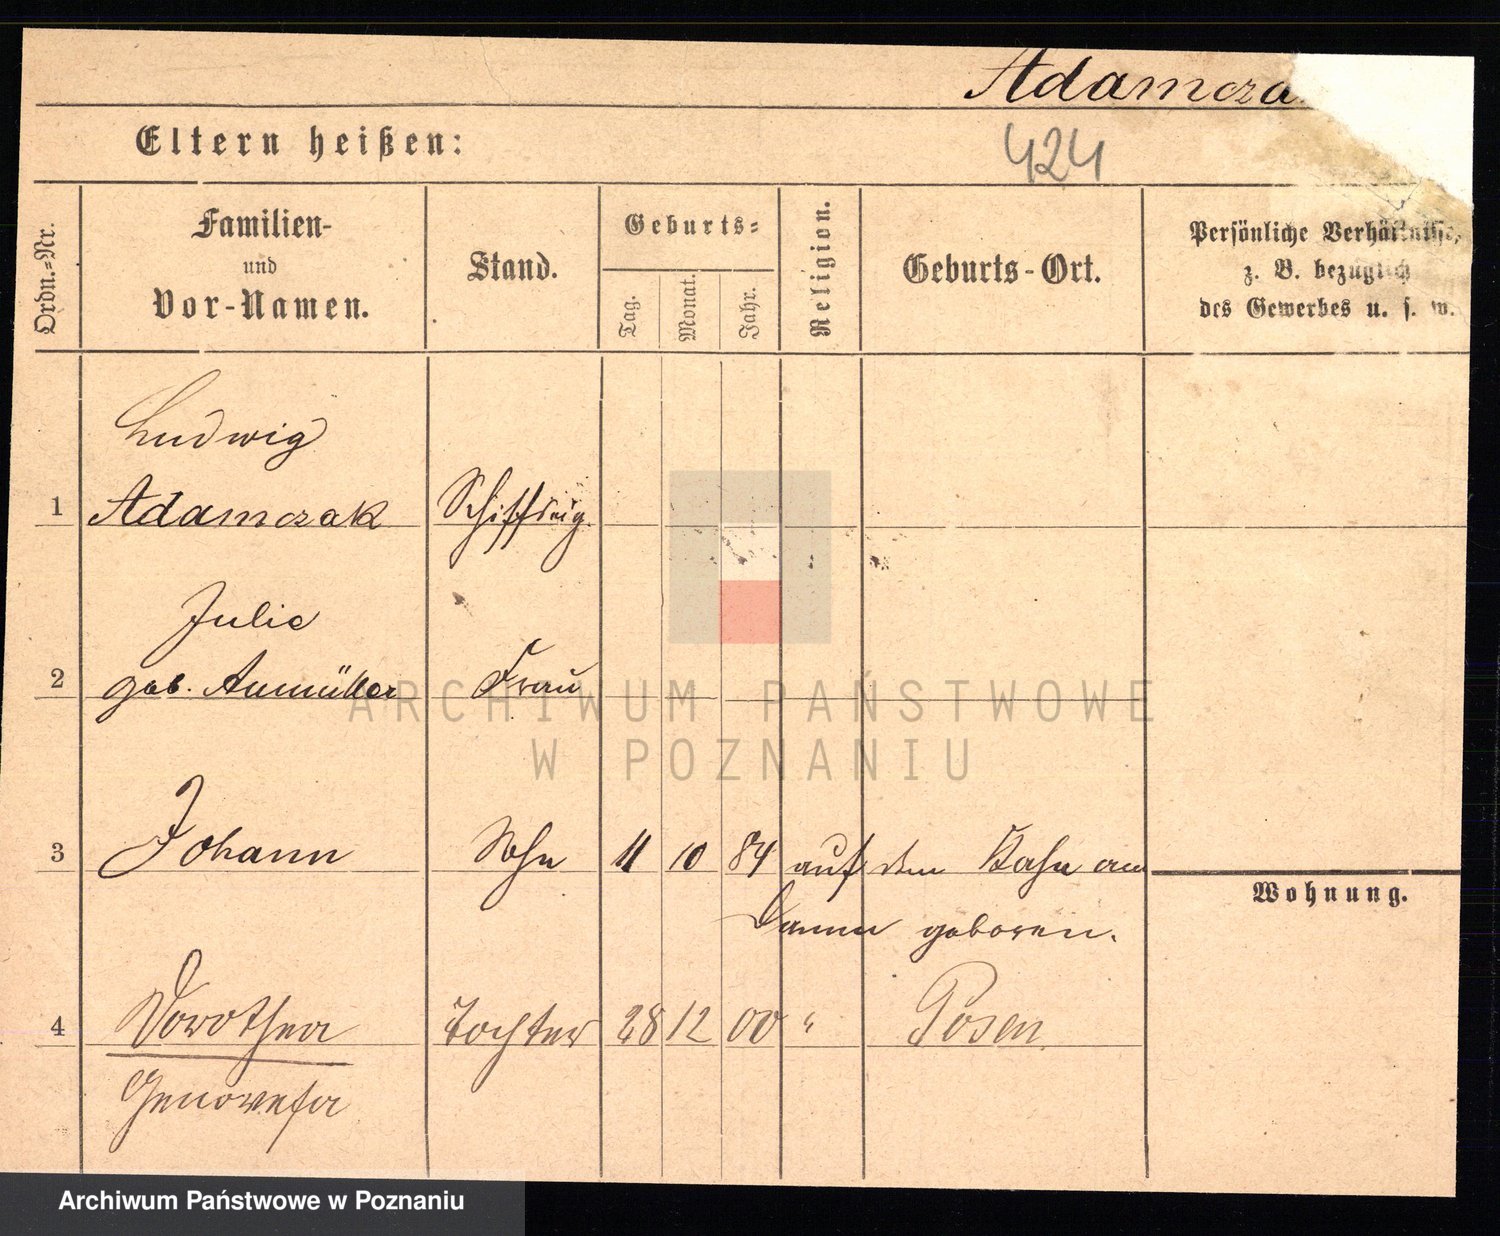 Adamcza
424
Eltern heißen:
Ordn.-Nr.
Familien-
und
Vor-Namen.
Stand.
Geburts-
Tag.
Monat.
Jahr.
Religion.
Geburts-Ort.
Persönliche Verhältnisse,
z. B. bezüglich
des Gewerbes u. s. w.
Ludwig
1 Adamczak Schiffseig.
Julie
2 geb. Aumüller Frau
ARCHIWUM PAŃSTWOWE
W POZNANIU
3 Johann Sohn 11 10 84 auf dem Kahn am
Wohnung.
Damm geboren.
4 Dorothea Tochter 28 12 00 " Posen
Genovefa
Archiwum Państwowe w Poznaniu